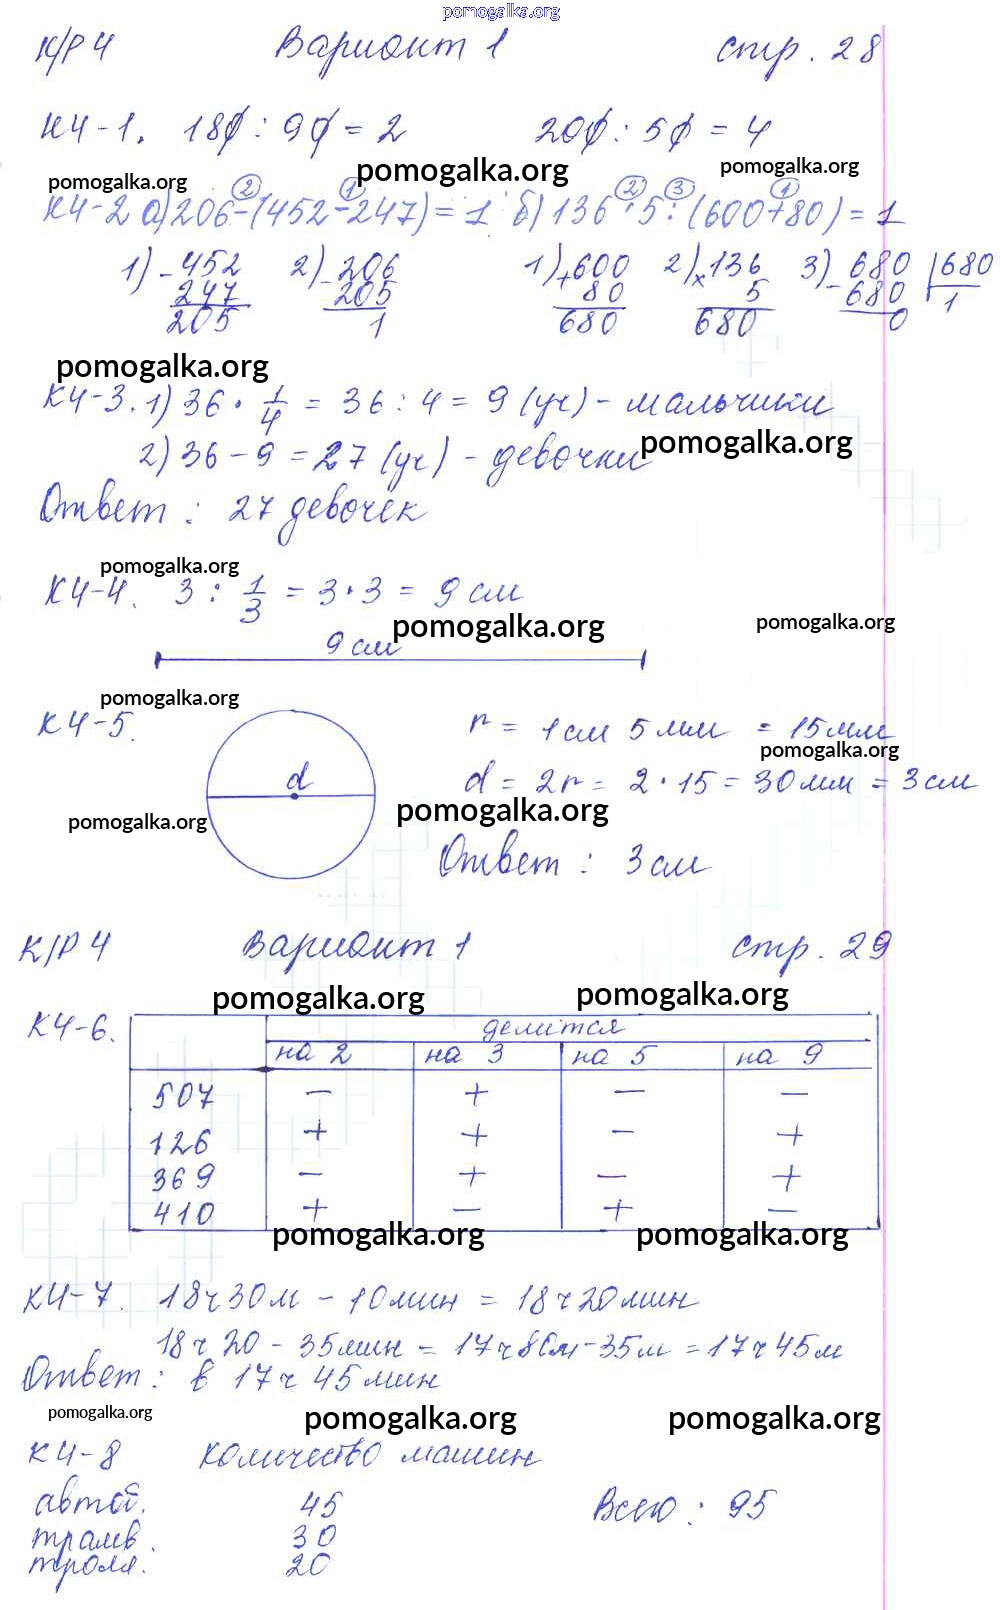 pomogalka.org
К/Р 4 Вариант 1 стр. 28
К4-1. 180 : 90 = 2 200 : 50 = 4
pomogalka.org pomogalka.org pomogalka.org
② ① ② ③ ①
К4-2 а) 206-(452-247) = 1 б) 136 · 5 : (600+80) = 1
1) - 452 2) - 206 1) + 600 2) × 136 3) - 680 | 680
247 205 80 5 680 1
205 1 680 680 0
pomogalka.org
К4-3. 1) 36 · 1/4 = 36 : 4 = 9 (уч) - мальчики
2) 36 - 9 = 27 (уч) - девочки
pomogalka.org
Ответ : 27 девочек
pomogalka.org
К4-4. 3 : 1/3 = 3 · 3 = 9 см
pomogalka.org pomogalka.org
9 см
pomogalka.org
К4-5. r = 1 см 5 мм = 15 мм
pomogalka.org
d d = 2r = 2 · 15 = 30 мм = 3 см
pomogalka.org pomogalka.org
Ответ : 3 см
К/Р 4 Вариант 1 стр. 29
pomogalka.org pomogalka.org
К4-6. делится
на 2 на 3 на 5 на 9
507 - + - -
126 + + - +
369 - + - +
410 + - + -
pomogalka.org pomogalka.org
К4-7. 18ч 30м - 10мин = 18ч 20мин
18ч 20 - 35мин = 17ч 80м - 35м = 17ч 45м
Ответ : в 17ч 45мин
pomogalka.org pomogalka.org pomogalka.org
К4-8 Количество машин
автоб. 45 Всего : 95
трамв. 30
тролл. 20